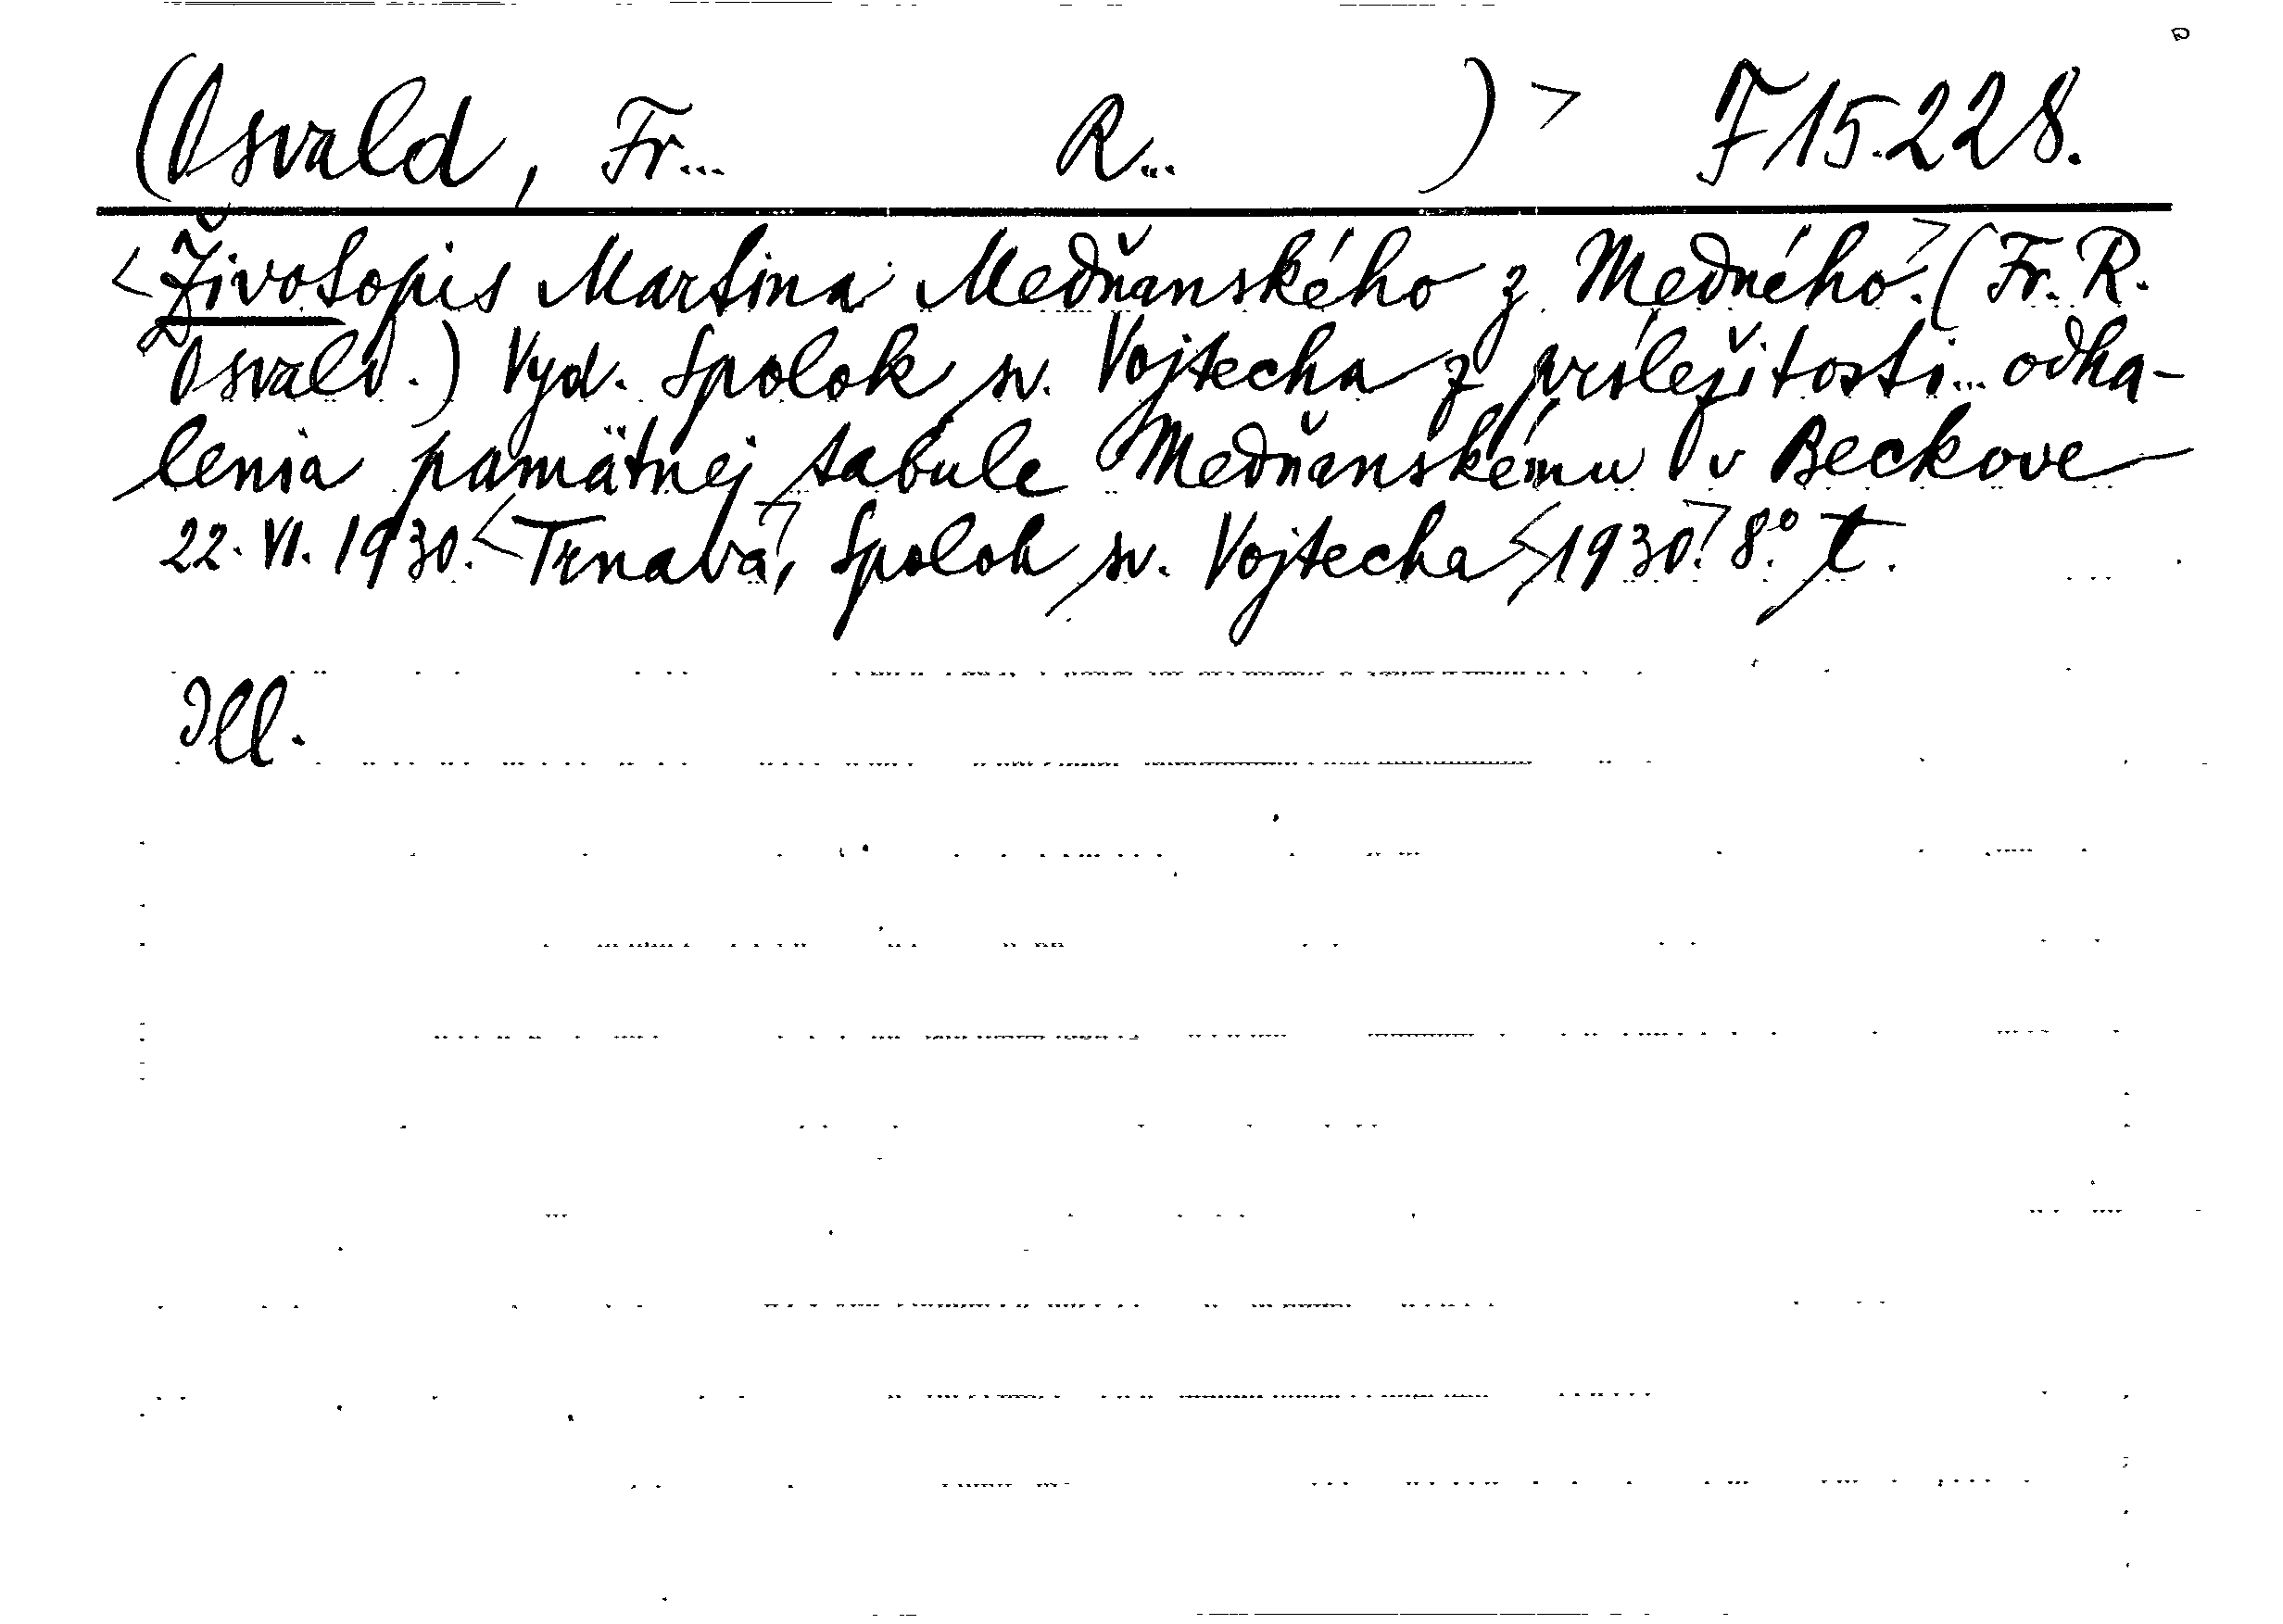 (Osvald, Fr... R... )> F 15.228.
<Životopis Martina Medňanského z Medného.> (Fr. R.
Osvald.) Vyd. Spolok sv. Vojtecha z príležitosti... odha-
lenia pamätnej tabule Medňanskému v Beckove
22. VI. 1930. <Trnava>, Spolok sv. Vojtecha <1930.> 8.° t.
Ill.